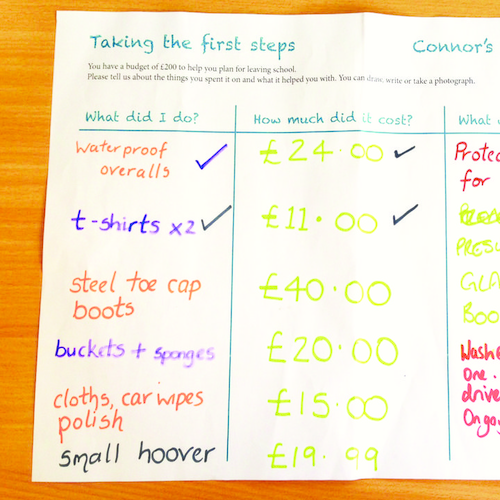 Taking the first steps
Connor's
You have a budget of £200 to help you plan for leaving school.
Please tell us about the things you spent it on and what it helped you with. You can draw, write or take a photograph.
What did I do? How much did it cost? What
waterproof overalls £24.00 Protec
for
t-shirts x2 £11.00
PRESU
steel toe cap boots £40.00 GLA
Boo
buckets + sponges £20.00 Washe
one.
cloths, car wipes polish £15.00 drive
Ongo
small hoover £19.99